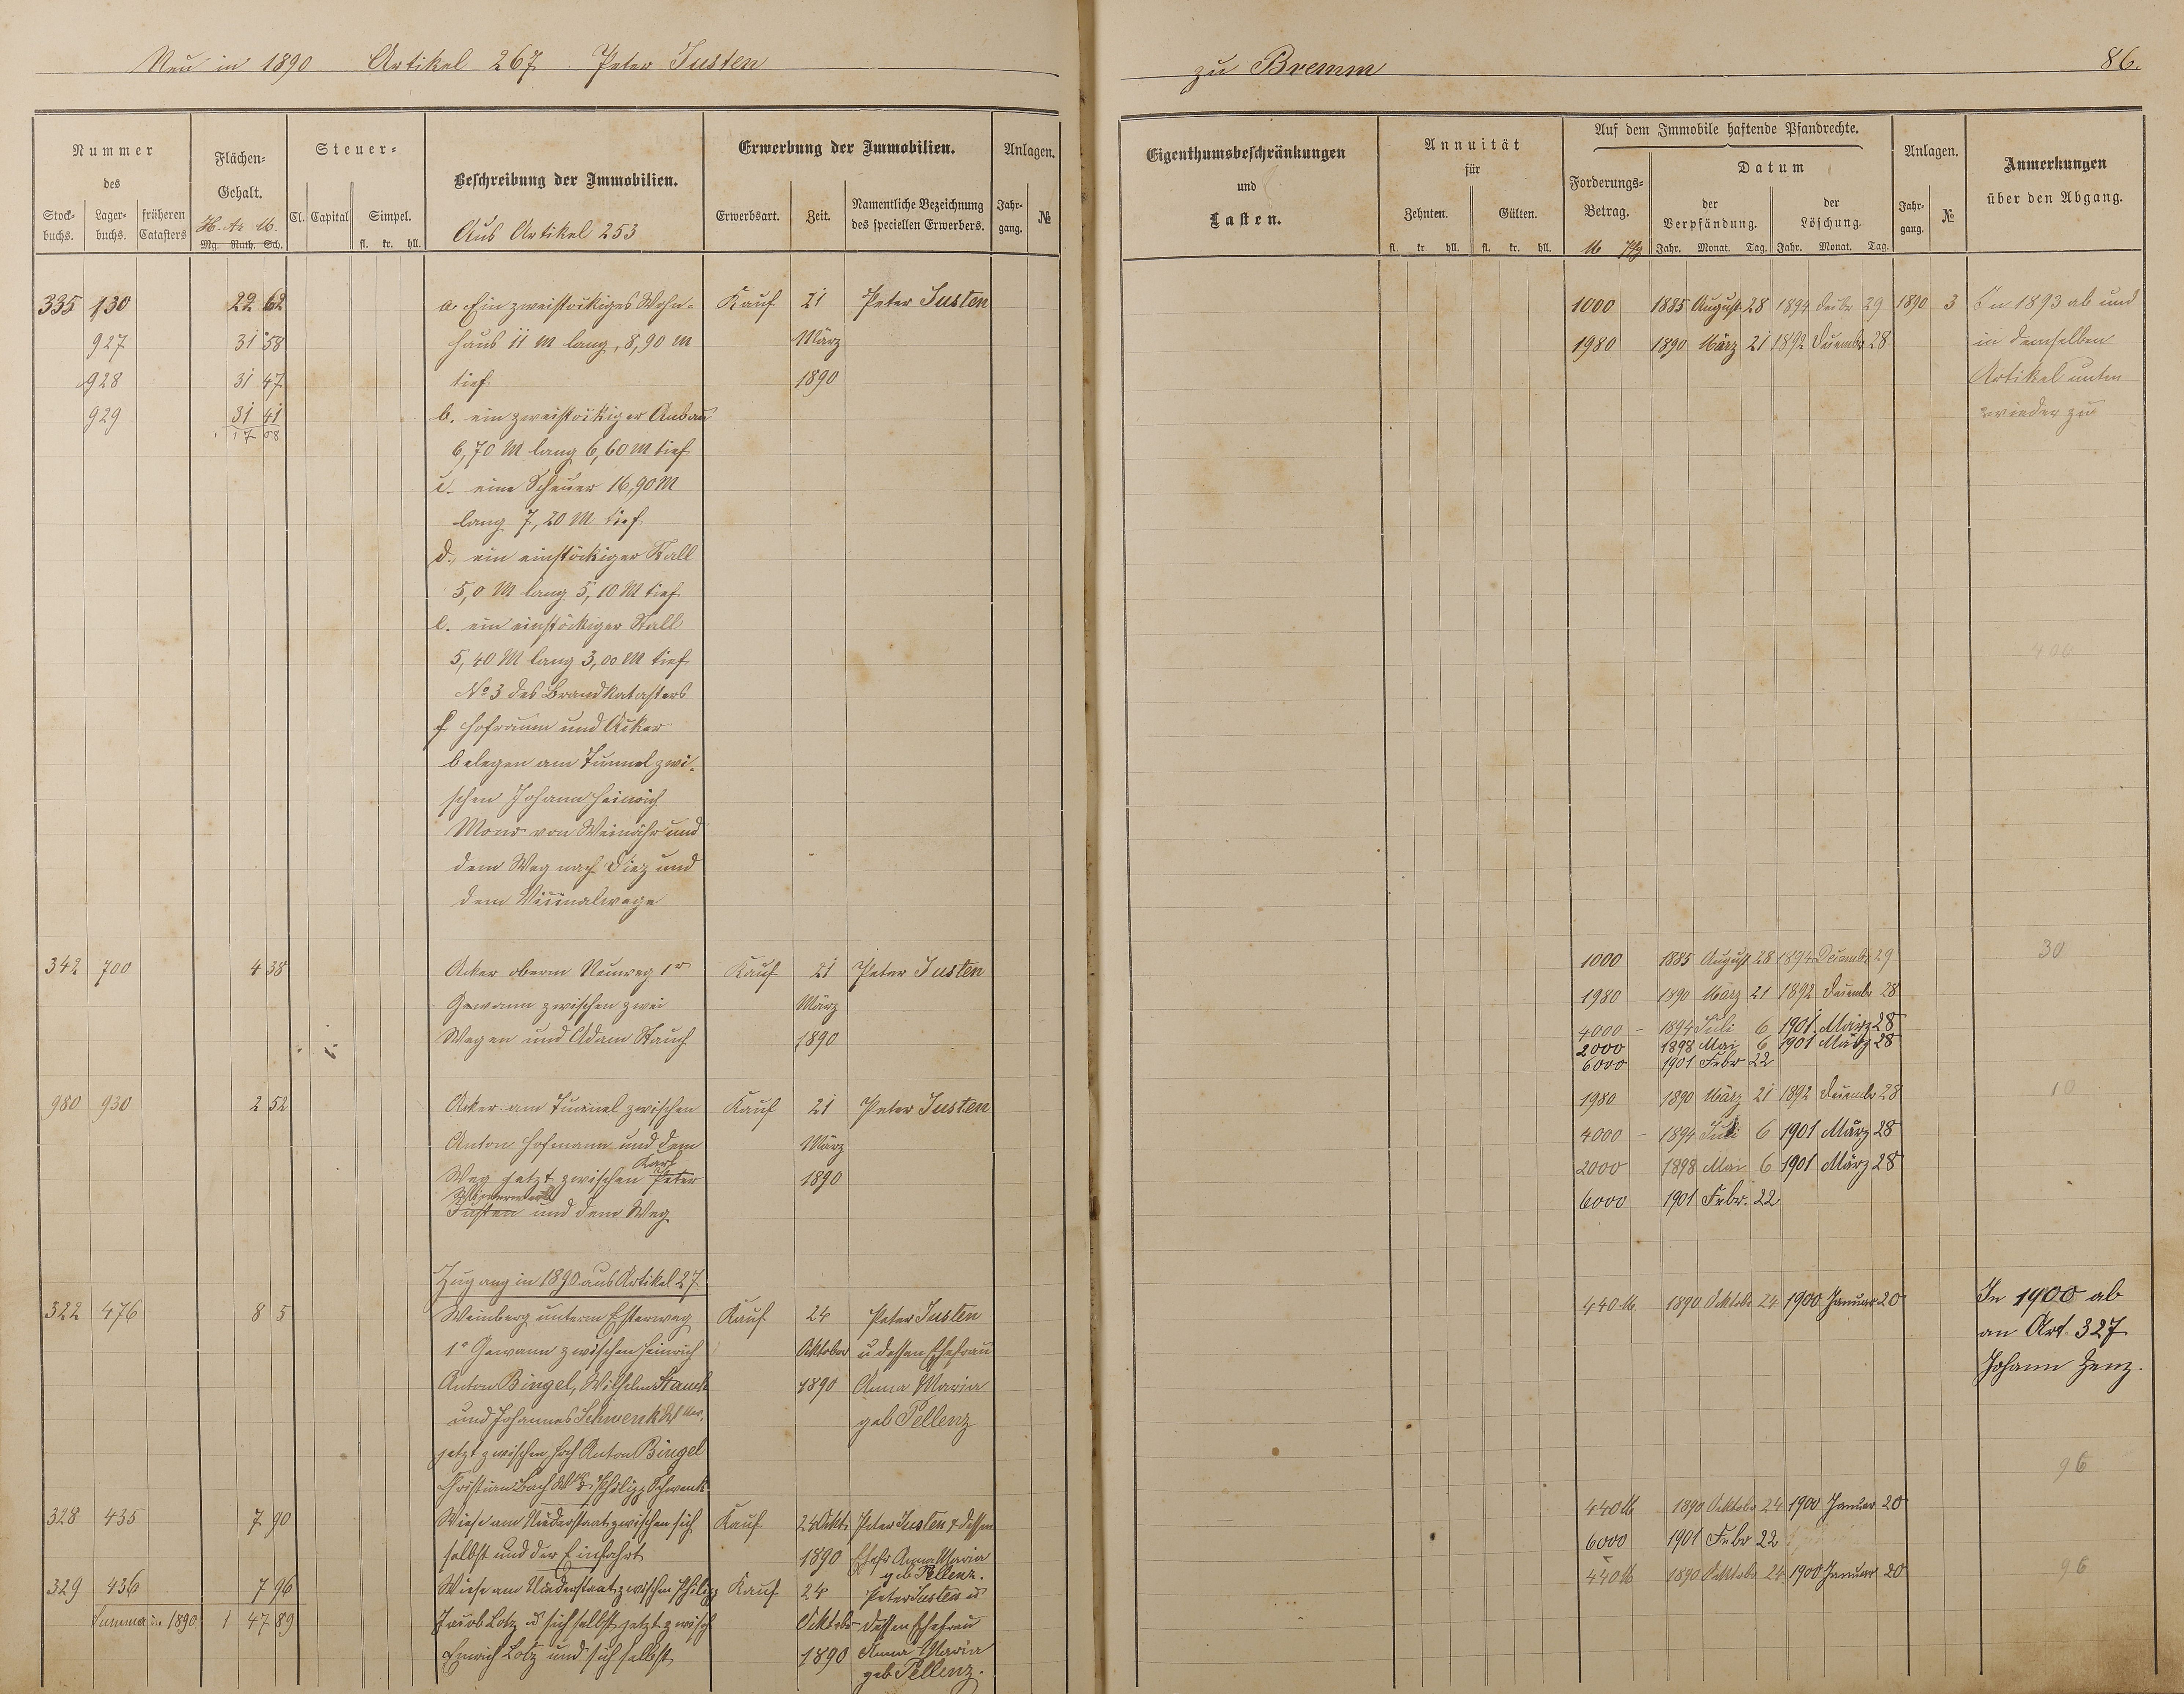 Neu in 1890 Artikel 267 Peter Justen
zu Bremm 86.
Nummer des
Stockbuchs. Lagerbuchs. früheren Catasters
Flächen-Gehalt.
H. Ar M.
Mg. Ruth. Sch.
Steuer-
Cl. Capital Simpel.
fl. kr. hll.
Beschreibung der Immobilien.
Aus Artikel 253
Erwerbung der Immobilien.
Erwerbsart. Zeit. Namentliche Bezeichnung des speciellen Erwerbers.
Anlagen.
Jahrgang. №
335 130 22 62 a. Ein zweistöckiges Wohn- Kauf 21 Peter Justen
927 31 58 haus 11 M lang, 8,90 M März
928 31 47 tief 1890
929 31 41 b. ein zweistöckiger Anbau
1 17 08
6,70 M lang 6,60 M tief
c. eine Scheuer 16,90 M
lang 7,20 M tief
d. ein einstöckiger Stall
5,0 M lang 5,10 M tief
e. ein einstöckiger Stall
5,40 M lang 3,00 M tief
No 3 des Brandkatasters
f Hofraum und Acker
belegen am Tunnel zwi-
schen Johann Heinrich
von Weinähr und
dem Weg nach Diez und
dem Vicinalwege
342 700 4 38 Acker oberm Neuweg 1r Kauf 21 Peter Justen
Gewann zwischen zwei März
Wegen und Adam Stauch 1890
980 930 2 52 Acker am Tunnel zwischen Kauf 21 Peter Justen
Anton Hofmann und dem März
Karl
Weg jetzt zwischen Peter 1890
Justen und dem Weg
Zugang in 1890 aus Artikel 27.
322 476 8 5 Weinberg unterm Esterweg Kauf 24 Peter Justen
1e Gewann zwischen Heinrich Oktober u dessen Ehefrau
Anton Bingel, Wilhelm Stauch 1890 Anna Maria
und Johannes Schwenk geb Pellenz
jetzt zwischen Hch Anton Bingel
Christian Bach & Philipp Schwenk
328 435 7 90 Wiese am Niederstaat zwischen sich Kauf 24 Okt. Peter Justen & dessen
selbst und der Einfahrt 1890 Ehefr Anna Maria
geb Pellenz.
329 436 7 96 Wiese am Niederstaat zwischen Philipp Kauf 24 Peter Justen u
Summa in 1890 1 47 89 Jacob Lotz u sich selbst jetzt zwisch Oktober dessen Ehefrau
Lotz und sich selbst 1890 Anna Maria
geb Pellenz.
Eigenthumsbeschränkungen
und
Lasten.
Annuität
für
Zehnten. Gülten.
fl. kr hll. fl. kr. hll.
Auf dem Immobile haftende Pfandrechte.
Forderungs-Betrag.
M Pfg
Datum
der Verpfändung. der Löschung.
Jahr. Monat. Tag. Jahr. Monat. Tag.
Anlagen.
Jahrgang. №
Anmerkungen
über den Abgang.
1000 1885 August 28 1894 Dezbr 29 1890 3 In 1893 ab und
1980 1890 März 21 1892 Dezember 28 in demselben
Artikel unten
wieder zu
400
1000 1885 August 28 1894 Dezember 29 30
1980 1890 März 21 1892 Dezember 28
4000 – 1894 Juli 6 1901 März 28
2000 1898 Mai 6 1901 März 28
6000 1901 Febr 22
1980 1890 März 21 1892 Dezember 28 10
4000 – 1894 Juli 6 1901 März 28
2000 1898 Mai 6 1901 März 28
6000 1901 Febr. 22
440 M 1890 Oktobr 24 1900 Januar 20 In 1900 ab
an Art. 327
Johann Henz.
96
440 M 1890 Oktobr 24 1900 Januar 20
6000 1901 Febr 22
440 M 1890 Oktobr 24 1900 Januar 20 96